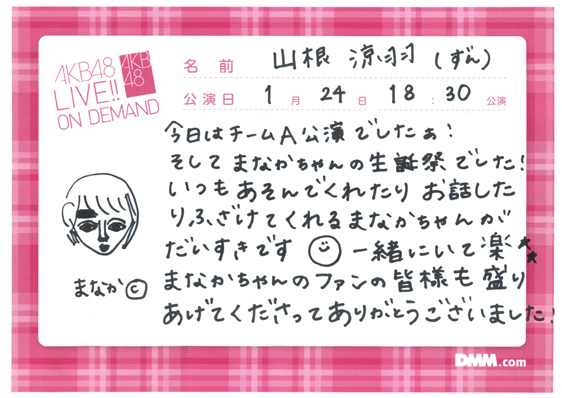 AKB48
LIVE!!
ON DEMAND
AKB
48
名前 山根 涼羽 (ずん)
公演日 1月24日 18:30 公演
今日はチームA公演でしたぁ!
そしてまなかちゃんの生誕祭でした!
いつもあそんでくれたり お話した
り、ふざけてくれるまなかちゃんが
だいすきです 一緒にいて楽
まなか©
まなかちゃんのファンの皆様も盛り
あげてくださってありがとうございました!
DMM.com